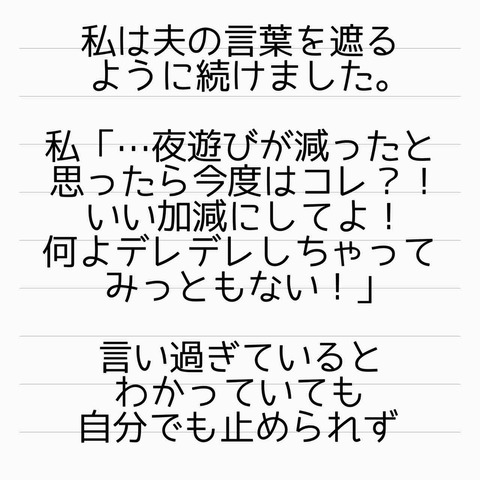 私は夫の言葉を遮る
ように続けました。
私「…夜遊びが減ったと
思ったら今度はコレ？！
いい加減にしてよ！
何よデレデレしちゃって
みっともない！」
言い過ぎていると
わかっていても
自分でも止められず